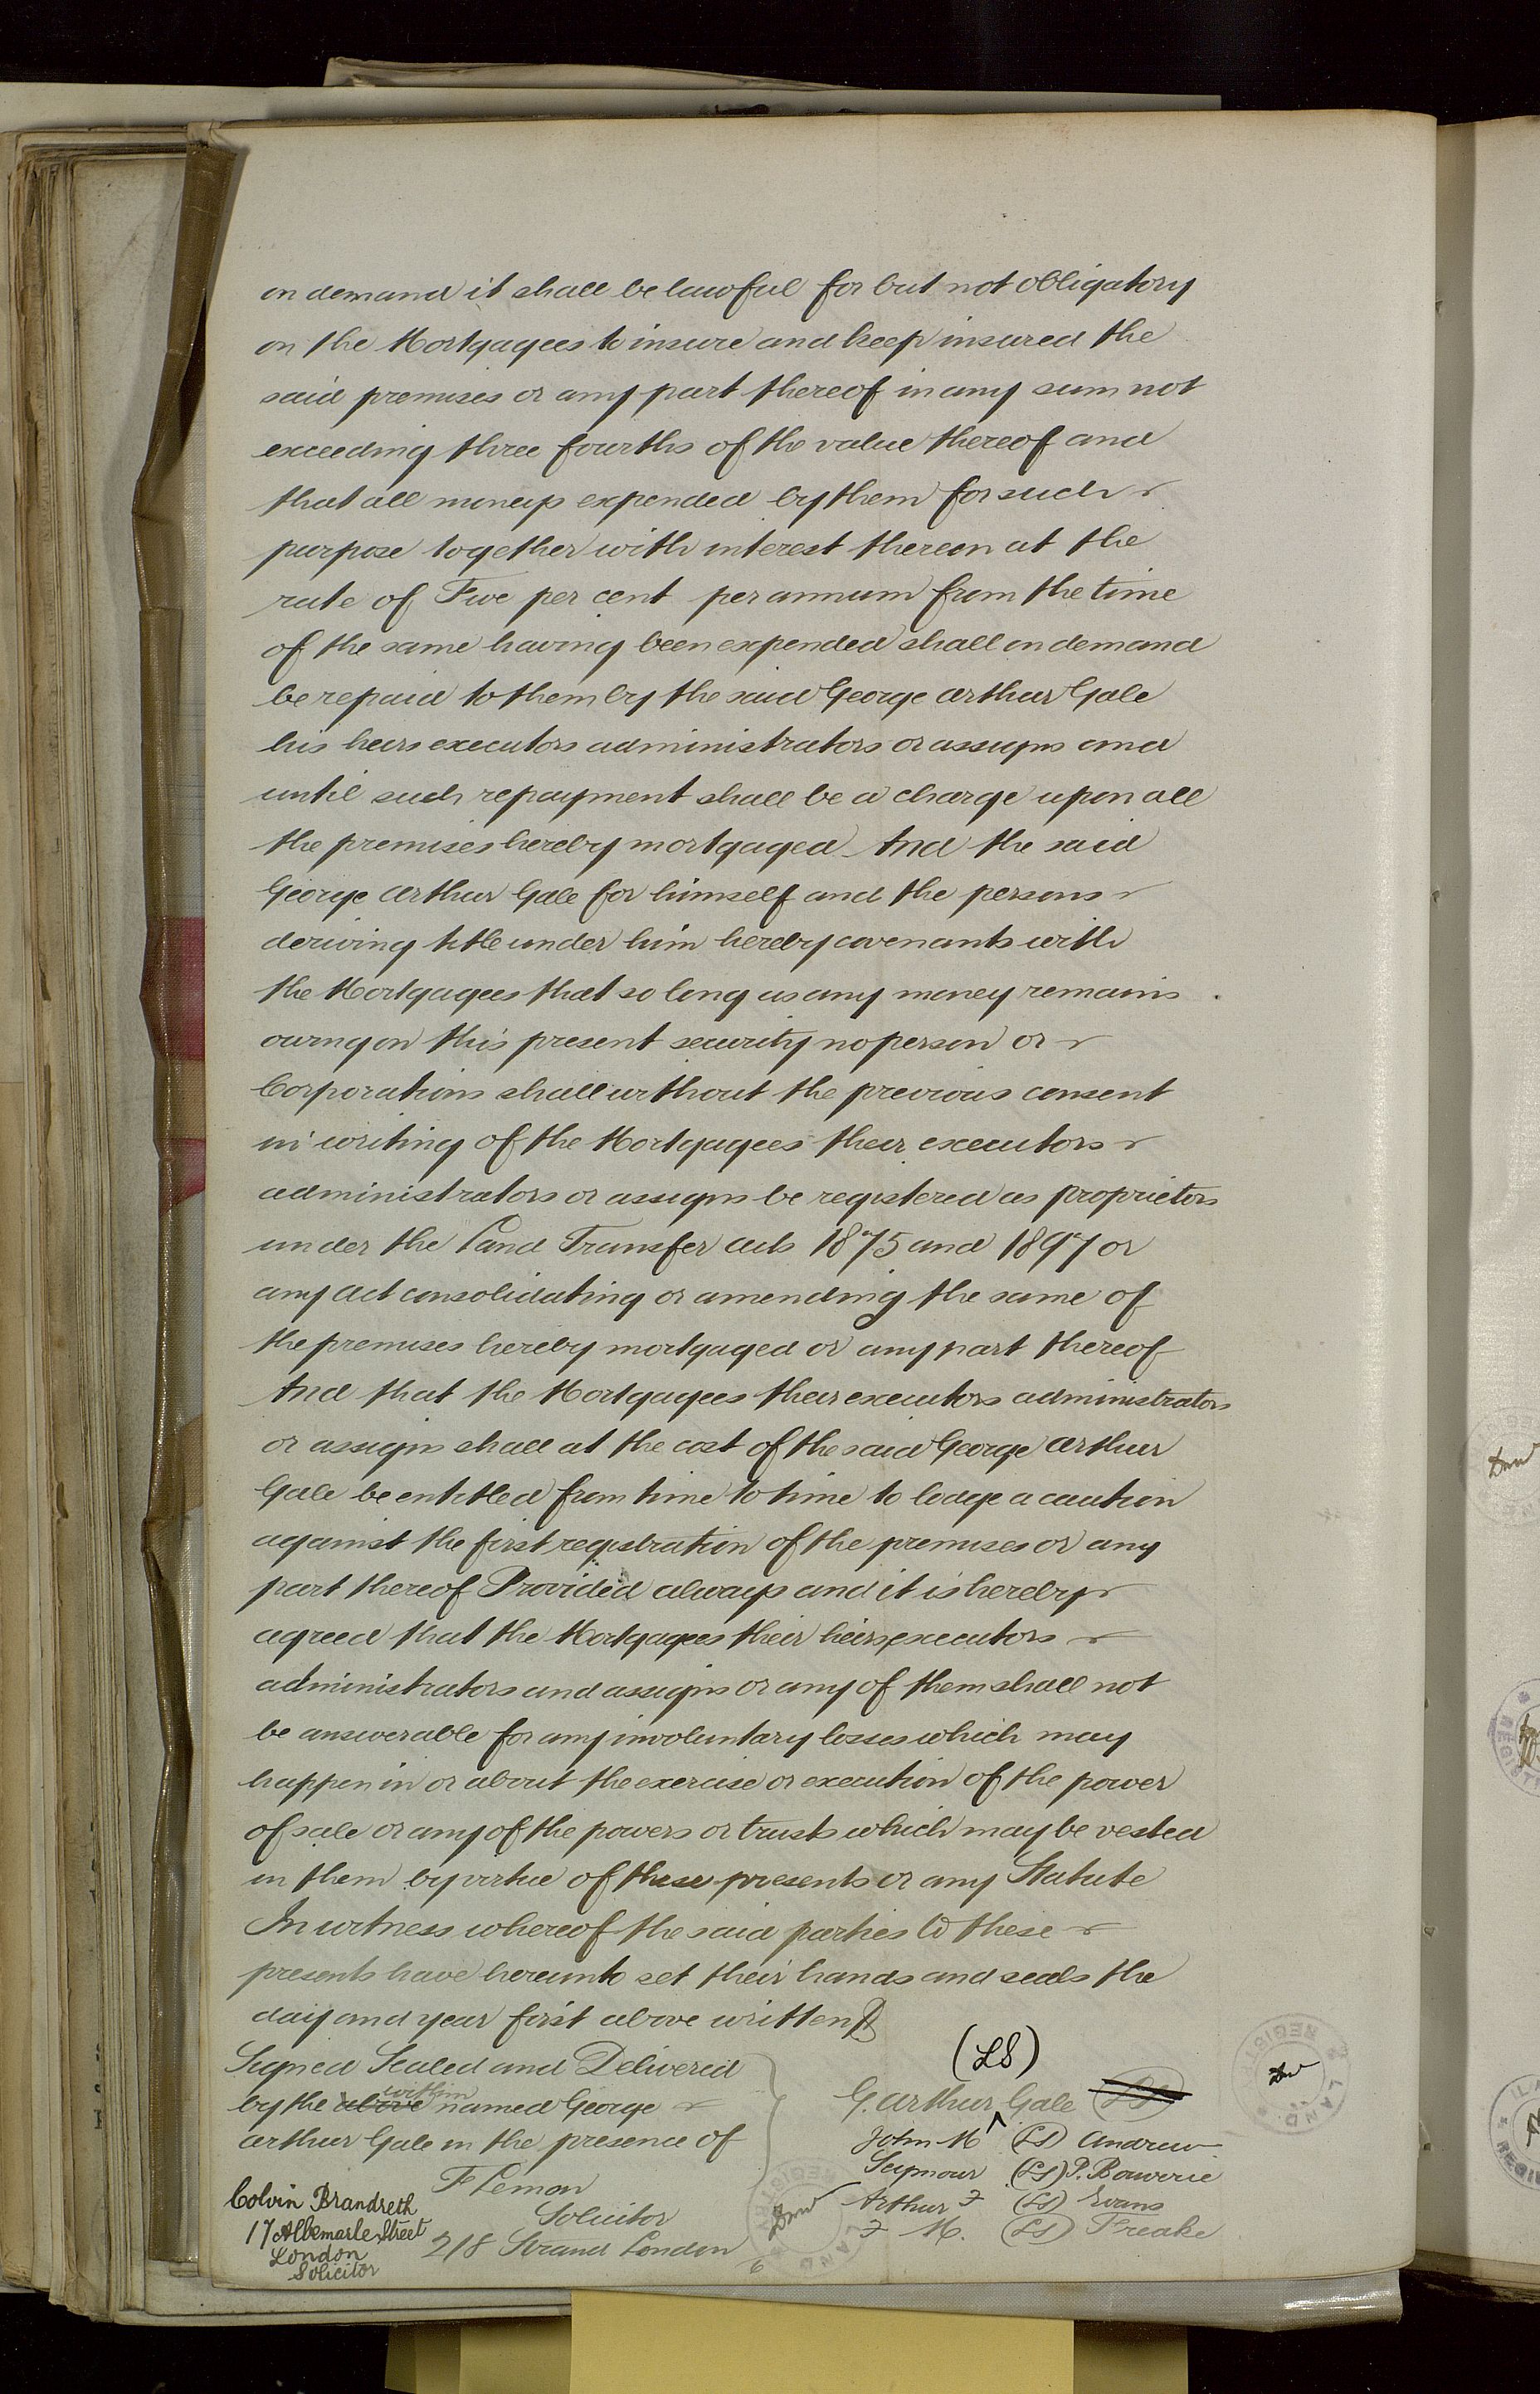 on demand it shall be lawful for but not obligatory
on the Mortgagees to insure and keep insured the
said premises or any part thereof in any sum not
exceeding three fourths of the value thereof and
that all moneys expended by them for such
purpose together with interest thereon at the
rate of Five per cent per annum from the time
of the same having been expended shall on demand
be repaid to them by the said George Arthur Gale
his heirs executors administrators or assigns and
until such repayment shall be a charge upon all
the premises hereby mortgaged And the said
George Arthur Gale for himself and the persons
deriving title under him hereby covenants with
the Mortgagees that so long as any money remains
owing on this present security no person or
Corporations shall without the previous consent
in writing of the Mortgagees their executors
administrators or assigns be registered as proprietors
under the Land Transfer Acts 1875 and 1897 or
any Act consolidating or amending the same of
the premises hereby mortgaged or any part thereof
And that the Mortgagees their executors administrators
or assigns shall at the cost of the said George Arthur
Gale be entitled from time to time to lodge a caution
against the first registration of the premises or any
part thereof Provided always and it is hereby
agreed that the Mortgagees their heirs executors
administrators and assigns or any of them shall not
be answerable for any involuntary losses which may
happen in or about the exercise or execution of the power
of sale or any of the powers or trusts which may be vested
in them by virtue of these presents or any Statute
In witness whereof the said parties to these
presents have hereunto set their hands and seals the
day and year first above written
Signed Sealed and Delivered
by the above within named George
Arthur Gale in the presence of
F Lemon
Solicitor
218 Strand London
Colvin Brandreth
17 Albemarle Street
London
Solicitor
(LS)
G. Arthur Gale (LS)
John M (LS) Andrew
Seymour (LS) P. Bouverie
Arthur F (LS) Evans
F M. (LS) Freake
LAND REGISTRY
LAND REGISTRY